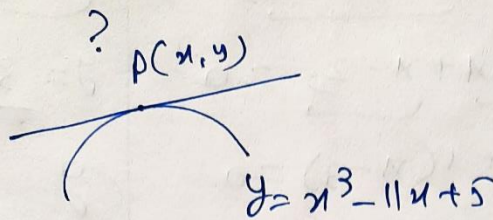 ?
P(x, y)
y = x³ - 11x + 5